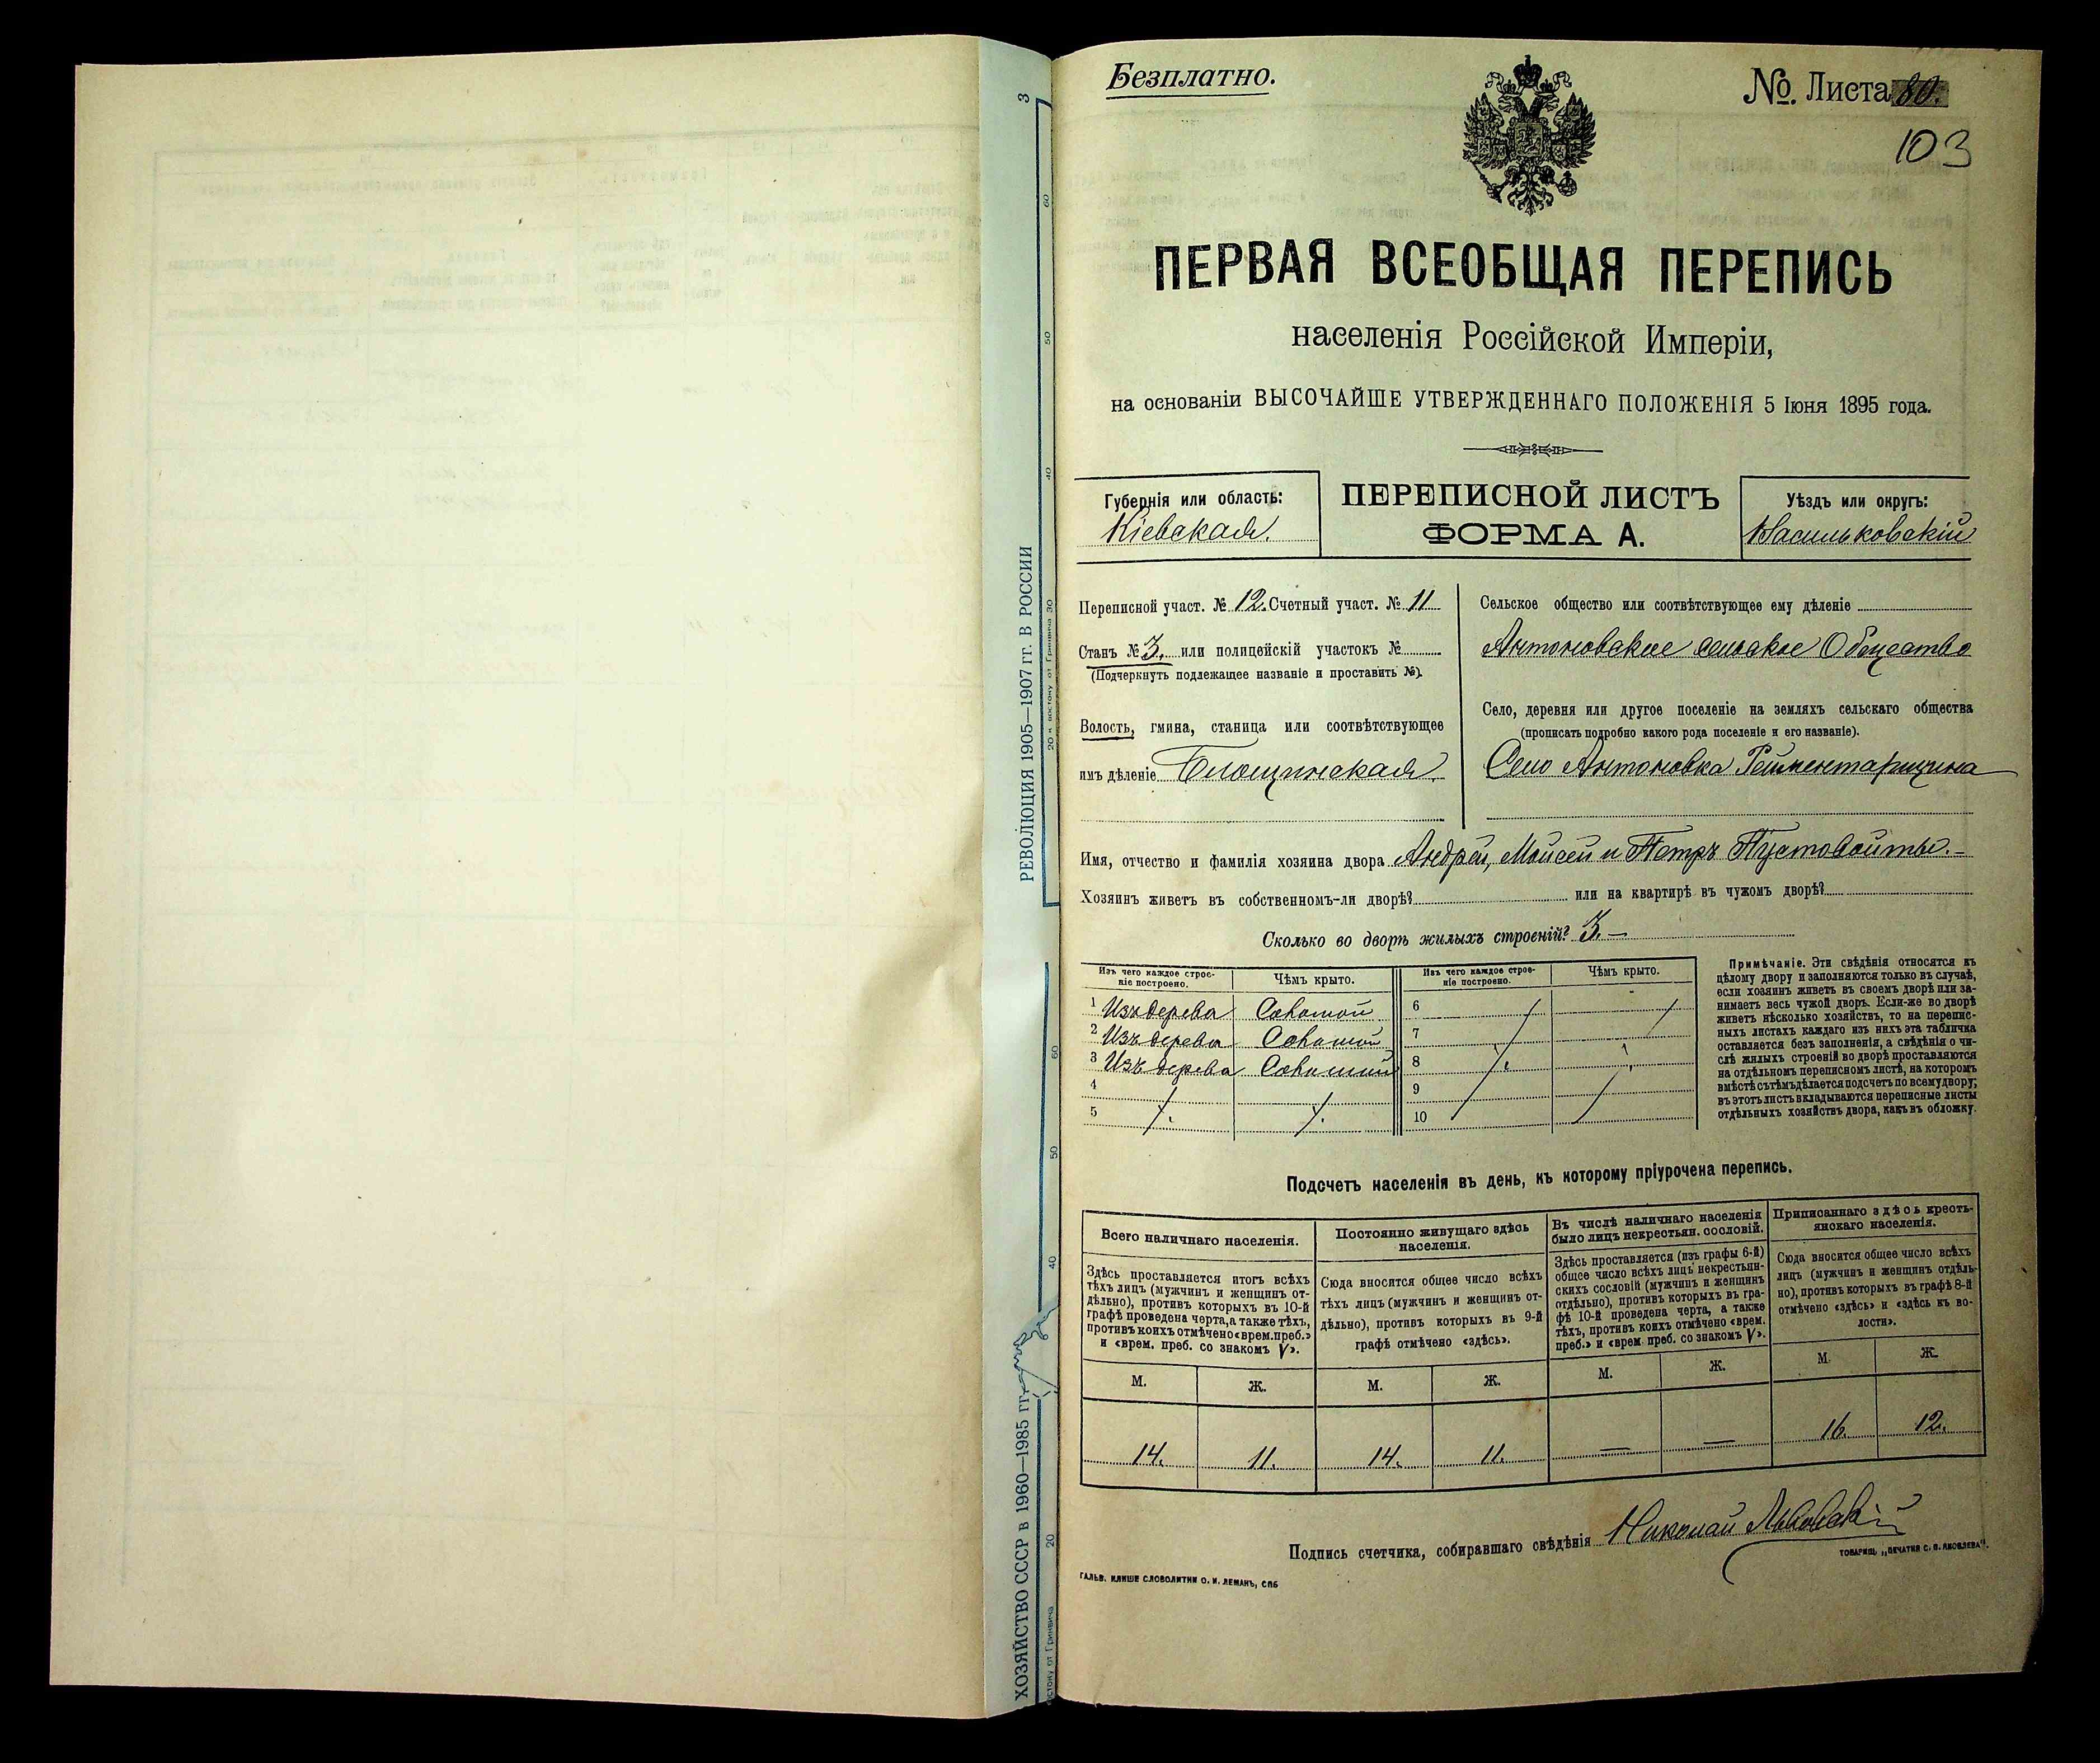 3
60
50
40
20 к востоку от Гринвича 30
РЕВОЛЮЦИЯ 1905—1907 гг. В РОССИИ
60
50
40
20
ХОЗЯЙСТВО СССР в 1960—1985 гг.
востоку от Гринвича
Безплатно.
№ Листа 80.
103
ПЕРВАЯ ВСЕОБЩАЯ ПЕРЕПИСЬ
населенія Россійской Имперіи,
на основаніи ВЫСОЧАЙШЕ УТВЕРЖДЕННАГО ПОЛОЖЕНІЯ 5 Іюня 1895 года.
Губернія или область:
Кіевская.
ПЕРЕПИСНОЙ ЛИСТЪ
ФОРМА А.
Уѣздъ или округъ:
Васильковскій
Переписной участ. № 12. Счетный участ. № 11
Станъ № 3. или полицейскій участокъ №
(Подчеркнуть подлежащее названіе и проставить №).
Волость, гмина, станица или соотвѣтствующее
имъ дѣленіе Блощинская.
Сельское общество или соотвѣтствующее ему дѣленіе
Антоновское сельское Общество
Село, деревня или другое поселеніе на земляхъ сельскаго общества
(прописать подробно какого рода поселеніе и его названіе).
Село Антоновка Рейментарщина
Имя, отчество и фамилія хозяина двора Андрей, Мойсей и Петръ Пустовойты.—
Хозяинъ живетъ въ собственномъ-ли дворѣ? или на квартирѣ въ чужомъ дворѣ?
Сколько во дворѣ жилыхъ строеній? 3.—
Изъ чего каждое строе-
ніе построено.
Чѣмъ крыто.
Изъ чего каждое строе-
ніе построено.
Чѣмъ крыто.
1 Изъ дерева Соломой 6
2 Изъ дерева Соломой 7
3 Изъ дерева Соломой 8
4 9
5 10
Примѣчаніе. Эти свѣдѣнія относятся къ
цѣлому двору и заполняются только въ случаѣ,
если хозяинъ живетъ въ своемъ дворѣ или за-
нимаетъ весь чужой дворъ. Если-же во дворѣ
живетъ нѣсколько хозяйствъ, то на перепис-
ныхъ листахъ каждаго изъ нихъ эта табличка
оставляется безъ заполненія, а свѣдѣнія о чи-
слѣ жилыхъ строеній во дворѣ проставляются
на отдѣльномъ переписномъ листѣ, на которомъ
вмѣстѣ съ тѣмъ дѣлается подсчетъ по всему двору;
въ этотъ листъ вкладываются переписные листы
отдѣльныхъ хозяйствъ двора, какъ въ обложку.
Подсчетъ населенія въ день, къ которому пріурочена перепись.
Всего наличнаго населенія.
Здѣсь проставляется итогъ всѣхъ
тѣхъ лицъ (мужчинъ и женщинъ от-
дѣльно), противъ которыхъ въ 10-й
графѣ проведена черта, а также тѣхъ,
противъ коихъ отмѣчено «врем. преб.»
и «врем. преб. со знакомъ V».
Постоянно живущаго здѣсь
населенія.
Сюда вносится общее число всѣхъ
тѣхъ лицъ (мужчинъ и женщинъ от-
дѣльно), противъ которыхъ въ 9-й
графѣ отмѣчено «здѣсь».
Въ числѣ наличнаго населенія
было лицъ некрестьян. сословій.
Здѣсь проставляется (изъ графы 6-й)
общее число всѣхъ лицъ некрестьян-
скихъ сословій (мужчинъ и женщинъ
отдѣльно), противъ которыхъ въ гра-
фѣ 10-й проведена черта, а также
тѣхъ, противъ коихъ отмѣчено «врем.
преб.» и «врем. преб. со знакомъ V».
Приписаннаго здѣсь кресть-
янскаго населенія.
Сюда вносится общее число всѣхъ
лицъ (мужчинъ и женщинъ отдѣль-
но), противъ которыхъ въ графѣ 8-й
отмѣчено «здѣсь» и «здѣсь къ во-
лости».
М. Ж. М. Ж. М. Ж. М. Ж.
14. 11. 14. 11. — — 16. 12.
Подпись счетчика, собиравшаго свѣдѣнія Николай Львовскій
ГАЛЬВ. КЛИШЕ СЛОВОЛИТНИ О. И. ЛЕМАНЪ, СПБ
ТОВАРИЩ. „ПЕЧАТНЯ С. П. ЯКОВЛЕВА".